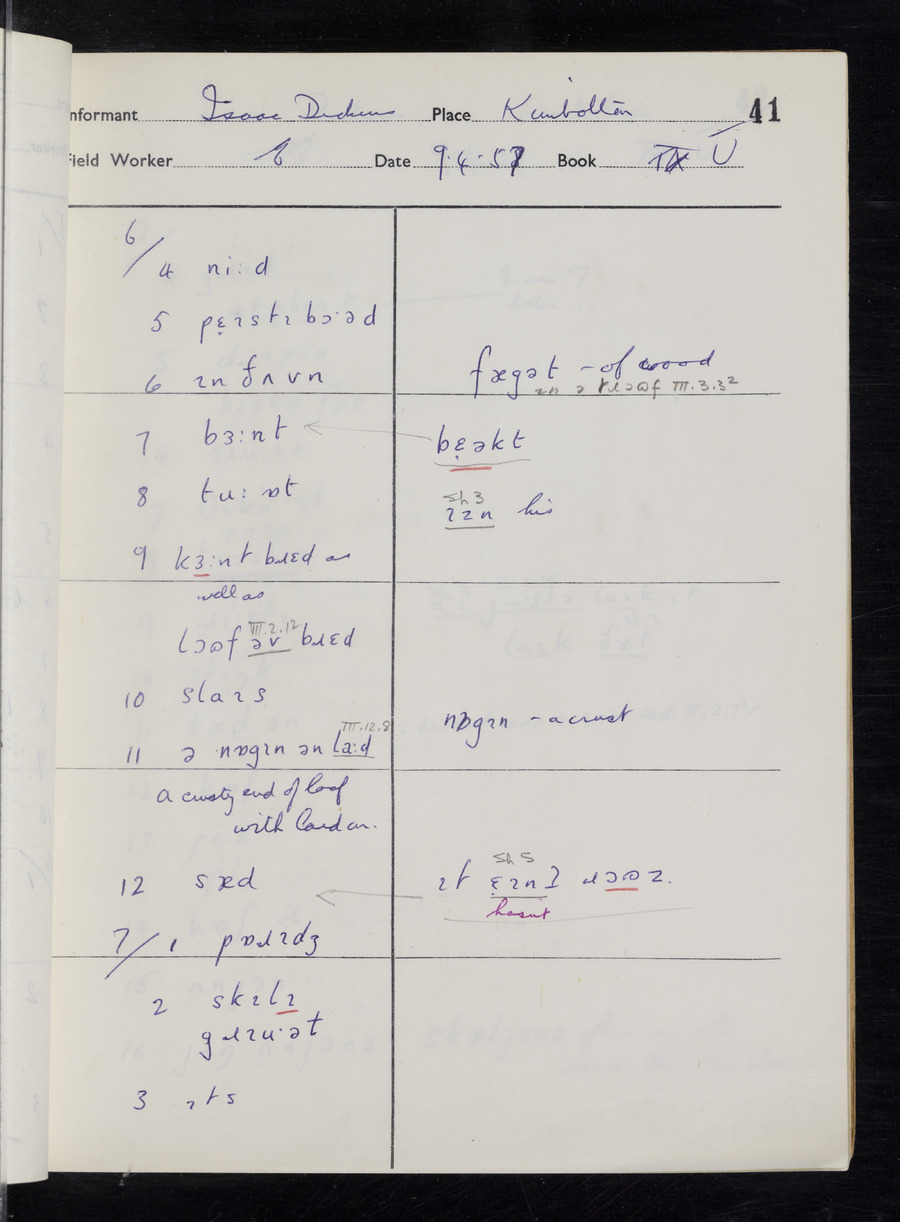 Informant Isaac Dickens Place Kimbolton 41
Field Worker Date 9.4.57 Book V
6/4 ni:d
5 pɛ̣ɪstɪ bɔ·əd
6 ɪn ðʌvn
fægət – of wood
ɪn ə tɹɔʊf III.3.32
7 bɜ:nt
bɛ̣əkt
8 tu: ɒt
Sh 3
ɪzn his
9 kɜ:nt bɹɛd as
well as
lɔʊf əv bɹɛd
III.2.12
10 slaɪs
11 ə nɒgɪn ən la:d
III.12.8
nɒgɪn – a crust
a crusty end of loaf
with lard on.
12 sæd
Sh 5
ɪt ɛ̣ɪnʔ ɹɔʊz.
hasnt
7/1 pɒɹɪdʒ
2 skɪlɪ
gɹɪu·ət
3 ɪts